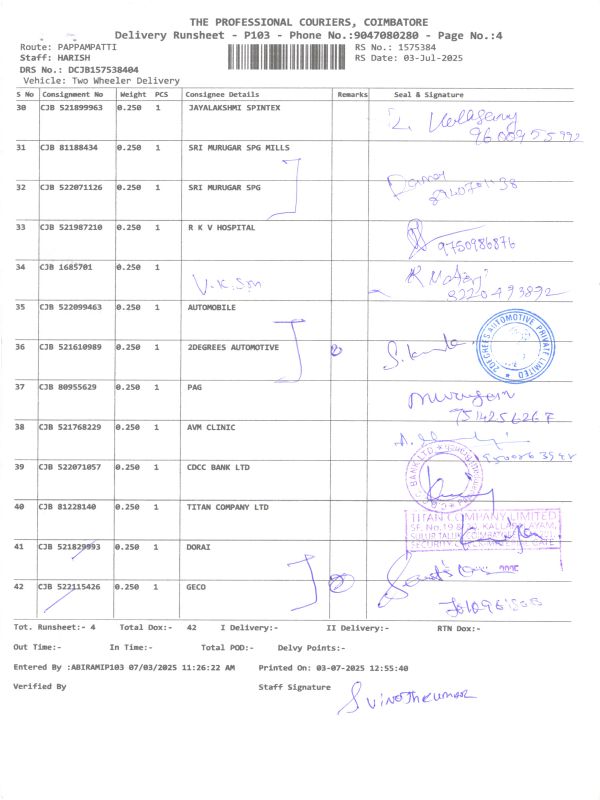 THE PROFESSIONAL COURIERS, COIMBATORE
Delivery Runsheet - P103 - Phone No.:9047080280 - Page No.:4
Route: PAPPAMPATTI RS No.: 1575384
Staff: HARISH RS Date: 03-Jul-2025
DRS No.: DCJB157538404
Vehicle: Two Wheeler Delivery
S No Consignment No Weight PCS Consignee Details Remarks Seal & Signature
30 CJB 521899963 0.250 1 JAYALAKSHMI SPINTEX
9600955992
31 CJB 81188434 0.250 1 SRI MURUGAR SPG MILLS
32 CJB 522071126 0.250 1 SRI MURUGAR SPG
33 CJB 521987210 0.250 1 R K V HOSPITAL
9750986876
34 CJB 1685701 0.250 1 V.K.Spn
8220493892
35 CJB 522099463 0.250 1 AUTOMOBILE
36 CJB 521610989 0.250 1 2DEGREES AUTOMOTIVE 2
2DEGREES AUTOMOTIVE PRIVATE LIMITED
37 CJB 80955629 0.250 1 PAG Murugan
38 CJB 521768229 0.250 1 AVM CLINIC
39 CJB 522071057 0.250 1 CDCC BANK LTD
BANK LTD
40 CJB 81228140 0.250 1 TITAN COMPANY LTD
TITAN COMPANY LIMITED
41 CJB 521829993 0.250 1 DORAI
42 CJB 522115426 0.250 1 GECO
Tot. Runsheet:- 4 Total Dox:- 42 I Delivery:- II Delivery:- RTN Dox:-
Out Time:- In Time:- Total POD:- Delvy Points:-
Entered By :ABIRAMIP103 07/03/2025 11:26:22 AM Printed On: 03-07-2025 12:55:40
Verified By Staff Signature S Vinothkumar